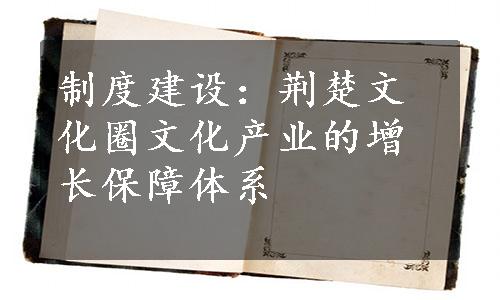 制度建设：荆楚文
化圈文化产业的增
长保障体系